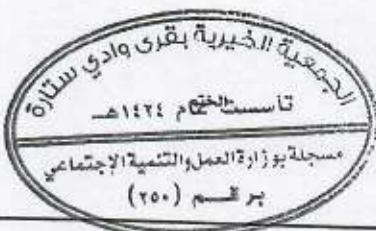 الجمعية الخيرية بقرى وادي ستارة
تأسست الختم عام ١٤٢٤هـ
مسجلة بوزارة العمل والتنمية الإجتماعي
برقم (٢٥٠)